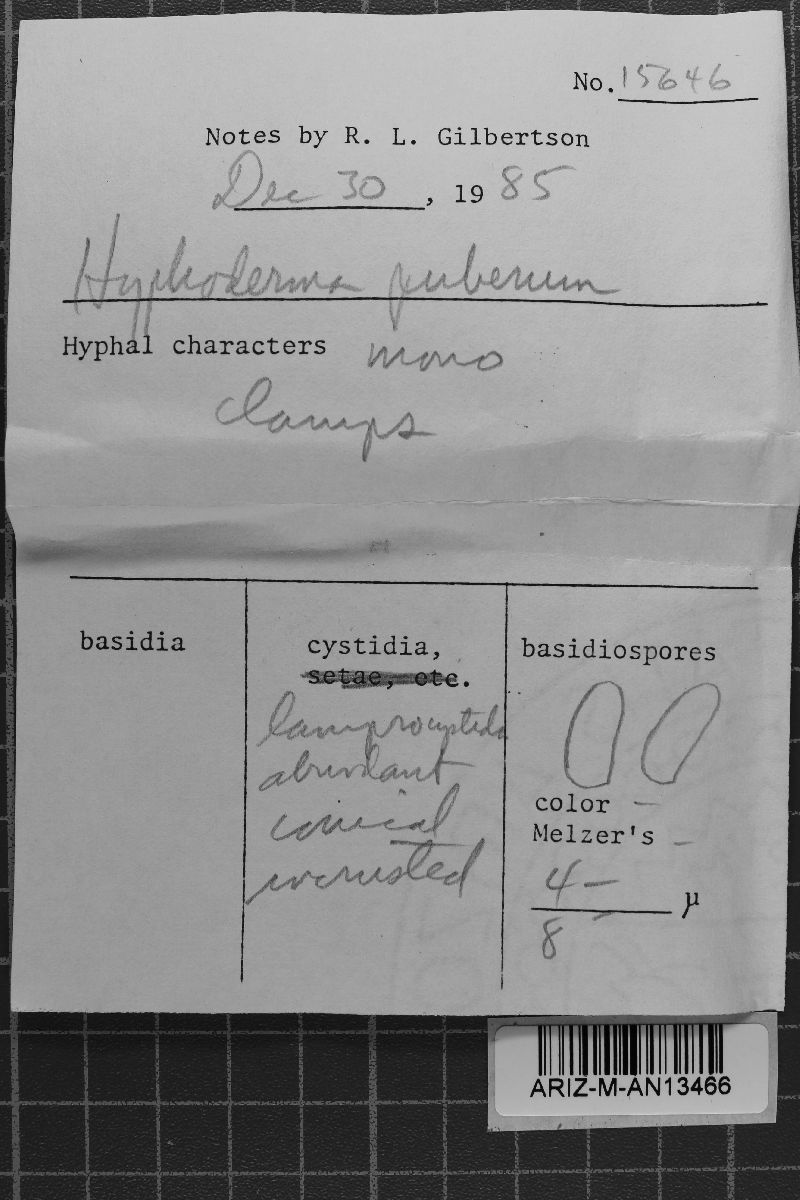 No. 15646
Notes by R. L. Gilbertson
Dec 30, 19 85
Hyphoderma puberum
Hyphal characters mono
clamps
basidia
cystidia,
setae, etc.
lamprocystidia
abundant
conical
incrusted
basidiospores
color —
Melzer's —
4 — μ
8 —
ARIZ-M-AN13466